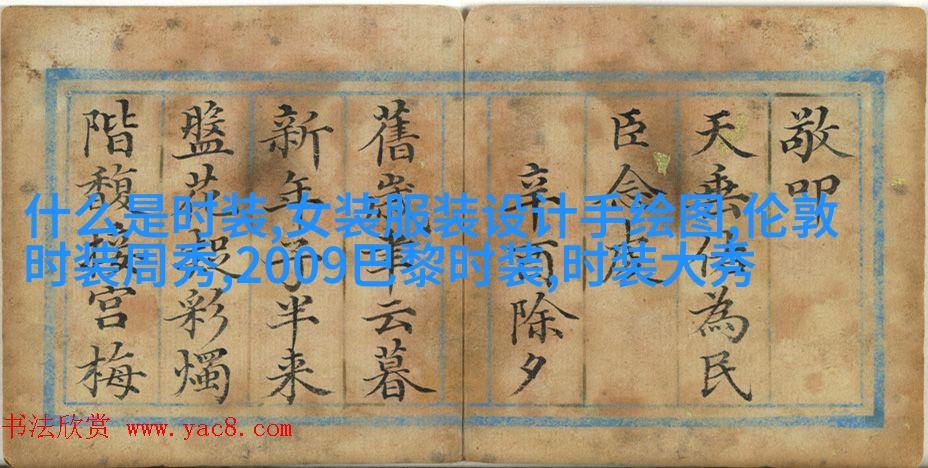 敬叩
天垂為民
臣
辛酉除夕
舊歲羊云暮
新年子半来
盤花彩燭
階馥宮梅
什么是时装,女装服装设计手绘图,伦敦
时装周秀,2009巴黎时装,时装大秀
书法欣赏 www.yac8.com